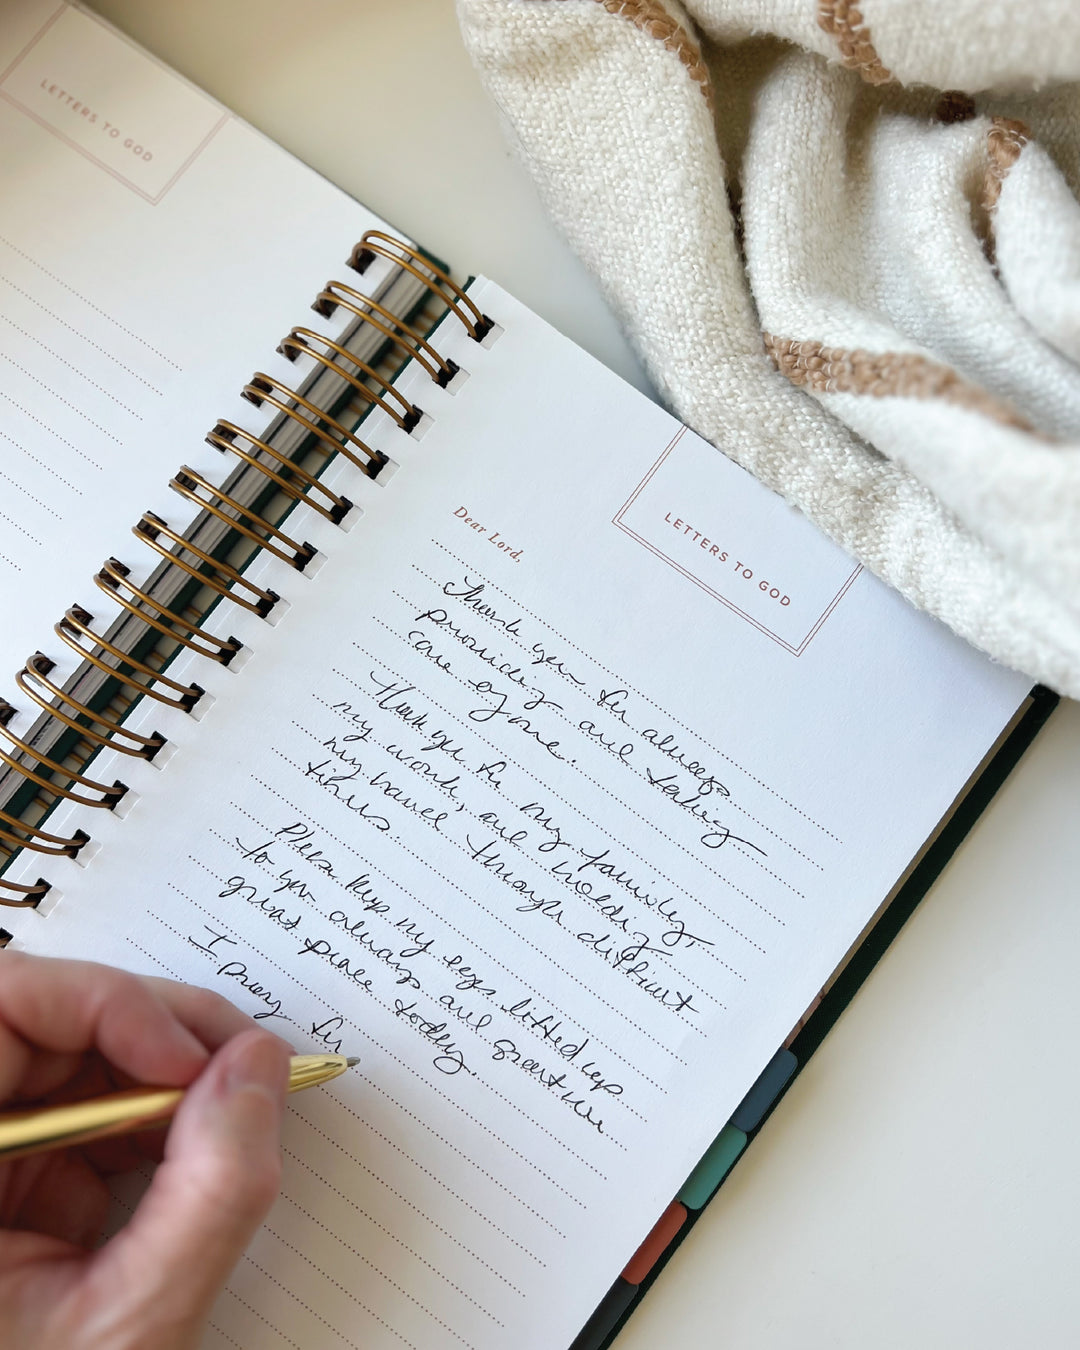 LETTERS TO GOD
LETTERS TO GOD
Dear Lord,
Thank you for always
providing and taking
care of me.
Thank you for my family,
my work, and holding
my hand through difficult
times.
Please keep my eyes lifted up
to you always and grant me
great peace today.
I pray for